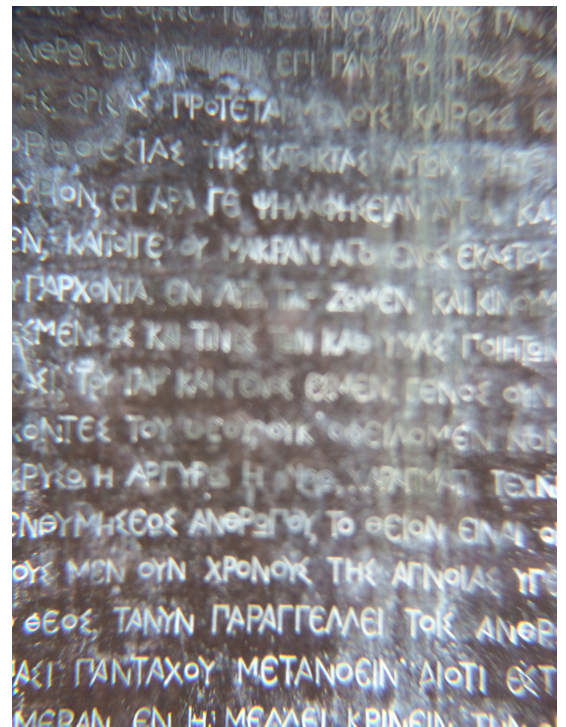 ΑΝΘΡΩΠΩΝ ΚΑΤΟΙΚΕΙΝ ΕΠΙ ΠΑΝ ΤΟ ΠΡΟΣΩΠΟ
ΤΗΣ ΟΡΙΣΑΣ ΠΡΟΤΕΤΑΓΜΕΝΟΥΣ ΚΑΙΡΟΥΣ ΚΑ
ΟΡΟΘΕΣΙΑΣ ΤΗΣ ΚΑΤΟΙΚΙΑΣ ΑΥΤΩΝ ΖΗΤΕ
ΚΥΡΙΟΝ, ΕΙ ΑΡΑ ΓΕ ΨΗΛΑΦΗΣΕΙΑΝ ΑΥΤΟΝ ΚΑΙ
ΕΝ, ΚΑΙΤΟΙΓΕ ΟΥ ΜΑΚΡΑΝ ΑΠΟ ΕΝΟΣ ΕΚΑΣΤΟΥ
ΥΠΑΡΧΟΝΤΑ. ΕΝ ΑΥΤΩ ΓΑΡ ΖΩΜΕΝ ΚΑΙ ΚΙΝΟΥΜ
ΕΣΜΕΝ ΩΣ ΚΑΙ ΤΙΝΕΣ ΤΩΝ ΚΑΘ ΥΜΑΣ ΠΟΙΗΤΩΝ
ΤΟΥ ΓΑΡ ΚΑΙ ΓΕΝΟΣ ΕΣΜΕΝ ΓΕΝΟΣ ΟΥΝ
ΧΟΝΤΕΣ ΤΟΥ ΘΕΟΥ ΟΥΚ ΟΦΕΙΛΟΜΕΝ ΝΟΜ
ΧΡΥΣΩ Η ΑΡΓΥΡΩ Η ΛΙΘΩ, ΧΑΡΑΓΜΑΤΙ ΤΕΧΝ
ΕΝΘΥΜΗΣΕΩΣ ΑΝΘΡΩΠΟΥ, ΤΟ ΘΕΙΟΝ ΕΙΝΑΙ Ο
ΤΟΥΣ ΜΕΝ ΟΥΝ ΧΡΟΝΟΥΣ ΤΗΣ ΑΓΝΟΙΑΣ ΥΠΕ
ΘΕΟΣ ΤΑΝΥΝ ΠΑΡΑΓΓΕΛΛΕΙ ΤΟΙΣ ΑΝΘΡ
ΠΑΣΙ ΠΑΝΤΑΧΟΥ ΜΕΤΑΝΟΕΙΝ ΔΙΟΤΙ ΕΣΤ
ΗΜΕΡΑΝ ΕΝ Η ΜΕΛΛΕΙ ΚΡΙΝΕΙΝ ΤΗΝ